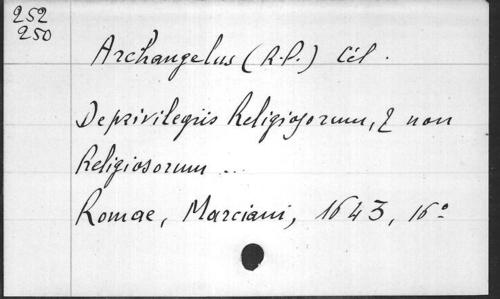 252
250
Archangelus (R.P.) Cél.
De privilegiis Religiosorum, & non
Religiosorum ...
Romae, Marciani, 1643, 16º